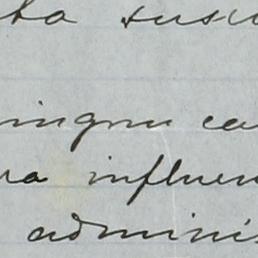 ta susc
ningun ca
ra influen
adminis